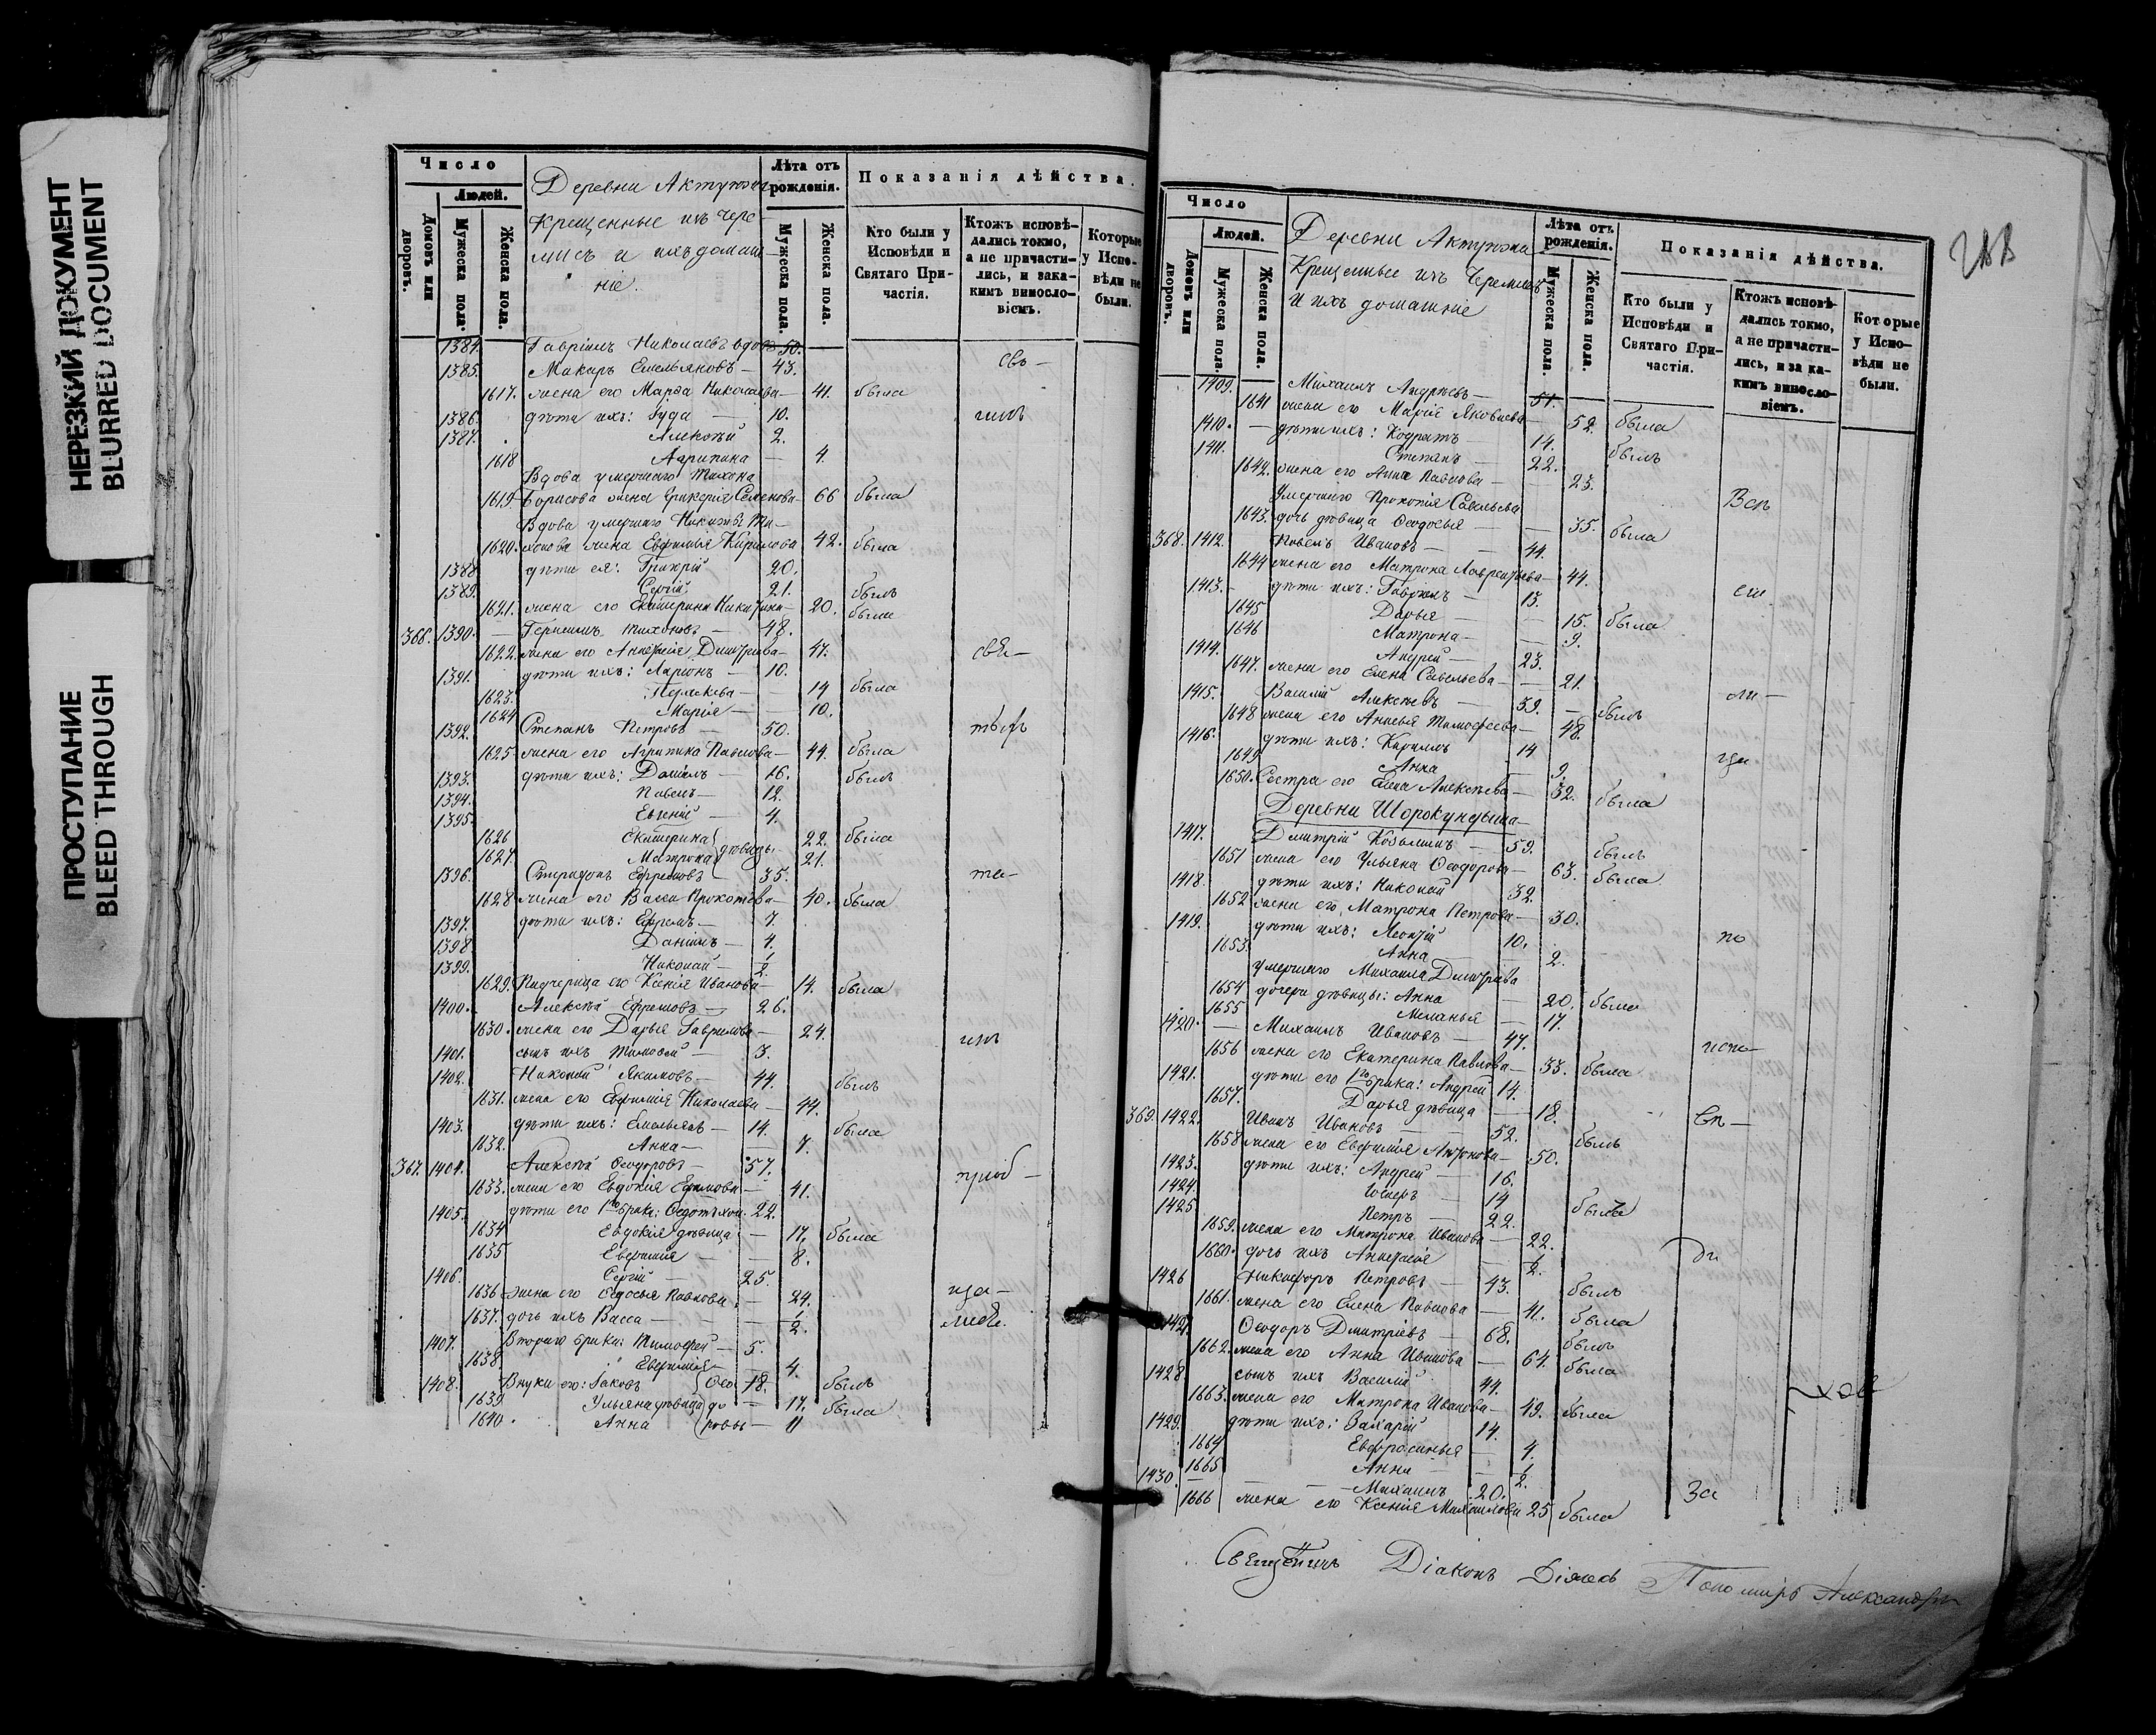 НЕРЕЗКИЙ ДОКУМЕНТ
BLURRED DOCUMENT
ПРОСТУПАНИЕ
BLEED THROUGH
Число
Людей.
Домовъ или дворовъ.
Мужеска пола.
Женска пола.
Деревни Актужа
Крещенные изъ Чере-
мисъ и ихъ домаш-
ніе.
Лѣта отъ рожденія.
Мужеска пола.
Женска пола.
Показанія дѣйства.
Кто были у Исповѣди и Святаго Причастія.
Ктожъ исповѣдались токмо, а не причастились, и закакимъ винословіемъ.
Которые у Исповѣди не были.
1384. Гавріилъ Николаевъ вдовъ 50.
1385. Макаръ Емельяновъ — 43. свъ —
1617. жена его Марѳа Николаева — 41. была
1386. дѣти ихъ: Іуда — 10.
1387. Алексѣй 2.
1618 Агрипина — 4.
Вдова умершаго Тихона
1619 Борисова жена Гликерія Семенова — 66 была
Вдова умершаго Никиты Ти-
1620. хонова жена Евфимія Кирилова 42. была
1388 дѣти ея: Григрій 20.
1389. Сергій 21. былъ
1621. жена его Екатерина Никитина — 20. была
366. 1390. — Герасимъ Тихоновъ — 48.
1622. жена его Анисія Дмитріева — 47.
1391. дѣти ихъ: Ларіонъ — 10.
1623. Пелагева — 14 была
1624 Марія — 10.
1392. Степанъ Петровъ — 50.
1625. жена его Агрипина Павлова — 44. была
1393. дѣти ихъ: Даніилъ — 16. былъ
1394. Павелъ — 12.
1395. Евгеній — 4.
1626 Екатерина 22. была
1627 Матрона дѣвицы. 21.
1396. Спиридонъ Ефремовъ 35.
1628 жена его Васса Прокопьева — 40. была
1397. дѣти ихъ: Ефремъ — 7.
1398 Даніилъ — 4.
1399. Николай — 1/2.
1629. Падчерица его Ксенія Иванова 14. была
1400. Алексѣй Ефремовъ — 26.
1630. жена его Дарья Гаврилова — 24.
1401. сынъ ихъ Тимофей — 3.
1402. Николай Якимовъ — 44. былъ
1631. жена его Евфимія Николаева — 44.
1403. дѣти ихъ: Емельянъ — 14. была
1632. Анна — 7.
367. 1404. Алексѣй Ѳеодоровъ — 57.
1633. жена его Евдокія Ефимова — 41.
1405. дѣти его 1го брака: Ѳедотъ хол. 22.
1634 Евдокія дѣвица — 17. была
1635 Евфимія — 8.
1406. Сергій — 25.
1636 жена его Ѳедосья Павлова. — 24.
1637. дочь ихъ Васса — 1/2.
1407. Втораго брака: Тимофей — 5.
1638 Евфимія — 4.
1408. Внуки его: Іаковъ 18. былъ
1639 Ульяна дѣвица — 17. была
1640. Анна — 11
Число
Людей.
Домовъ или дворовъ.
Мужеска пола.
Женска пола.
Деревни Актужа
Крещенные изъ Черемисъ
и ихъ домашніе
Лѣта отъ рожденія.
Мужеска пола.
Женска пола.
Показанія дѣйства.
Кто были у Исповѣди и Святаго Причастія.
Ктожъ исповѣдались токмо, а не причастились, и за какимъ винословіемъ.
Которые у Исповѣди не были.
1409. Михаилъ Андреевъ — 51.
1641 жена его Марія Яковлева — 52. была
1410. — дѣти ихъ: Кодратъ 14. былъ
1411. Степанъ — 22.
1642. жена его Анна Павлова — 23.
Умершаго Прокопія Савельева
1643. дочь дѣвица Ѳеодосья — 35. была
368. 1412. Павелъ Ивановъ — 44.
1644 жена его Матрона Лаврентьева — 44.
1413. дѣти ихъ: Гавріилъ — 13.
1645 Дарья — 15. была
1646 Матрона — 9.
1414. Андрей — 23.
1647. жена его Елена Савельева — 21.
1415. Василій Алексѣевъ — 59. — былъ
1648 жена его Анисья Тимофеева — 48.
1416. дѣти ихъ: Кирилъ 14
1649 Анна 9.
1650. Сестра его Елена Алексѣева — 32. была
Деревни Шорокундыша
1417. Дмитрій Козьминъ — 59. былъ
1651 жена его Ульяна Ѳеодорова — 63. была
1418. дѣти ихъ: Николай 32.
1652 жена его, Матрона Петрова — 30.
1419. дѣти ихъ: Леонтій 10. по
1653. Анна 2.
умершаго Михаила Дмитріева
1654 дочери дѣвицы: Анна — 20. была
1655 Меланья — 17.
1420. — Михаилъ Ивановъ — 47.
1656 жена его Екатерина Павлова — 33. была
1421. дѣти его 1го брака: Андрей 14.
1657. Дарья дѣвица — 18.
369. 1422. Иванъ Ивановъ — 52. былъ
1658 жена его Евфимія Антонова — 50.
1423. дѣти ихъ: Андрей — 16.
1424. Іосифъ — 14
1425 Петръ — 22.
1659. жена его Матрона Иванова — 22.
1660. дочь ихъ Анисія — 1/2.
1426 Никифоръ Петровъ — 43. былъ
1661. жена его Елена Павлова — 41. была
1427. Ѳеодоръ Дмитріевъ — 68. былъ
1662. жена его Анна Иванова — 64. была
1428 сынъ ихъ Василій 44.
1663. жена его Матрона Иванова — 49. была
1429. дѣти ихъ: Захарій 14.
1664 Евфросинья — 4.
1665 Анна — 1/2.
1430. — Михаилъ 20. За
1666 жена его Ксенія Михаилова 25 была
Священникъ Діаконъ Пономарь Александръ